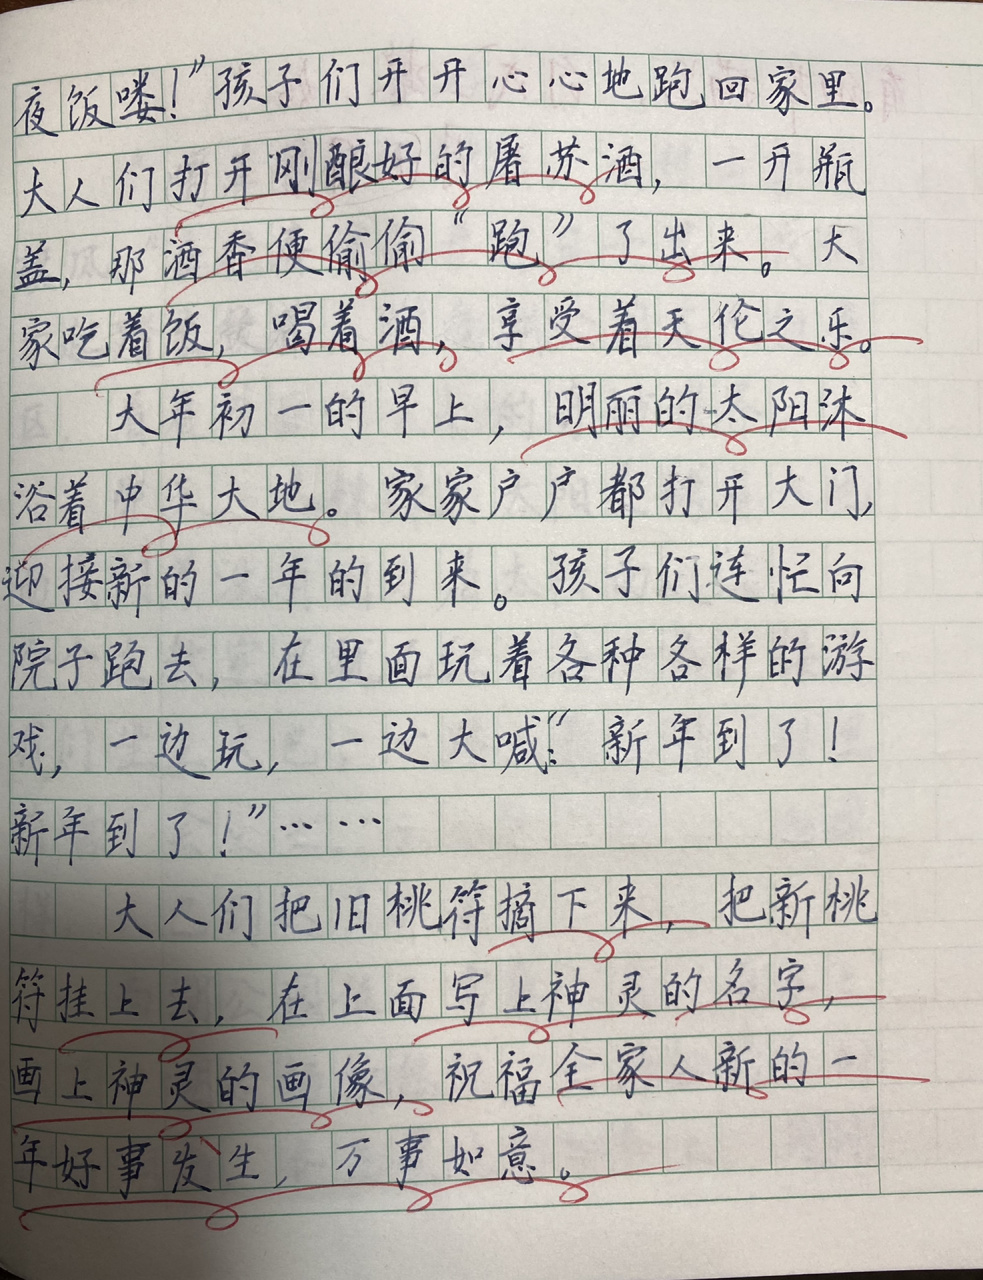 夜饭喽！”孩子们开开心心地跑回家里。
大人们打开刚酿好的屠苏酒，一开瓶
盖，那酒香便偷偷“跑”了出来。大
家吃着饭，喝着酒，享受着天伦之乐。
大年初一的早上，明丽的太阳沐
浴着中华大地。家家户户都打开大门，
迎接新的一年的到来。孩子们连忙向
院子跑去，在里面玩着各种各样的游
戏，一边玩，一边大喊：“新年到了！
新年到了！”……
大人们把旧桃符摘下来，把新桃
符挂上去，在上面写上神灵的名字，
画上神灵的画像，祝福全家人新的一
年好事发生，万事如意。